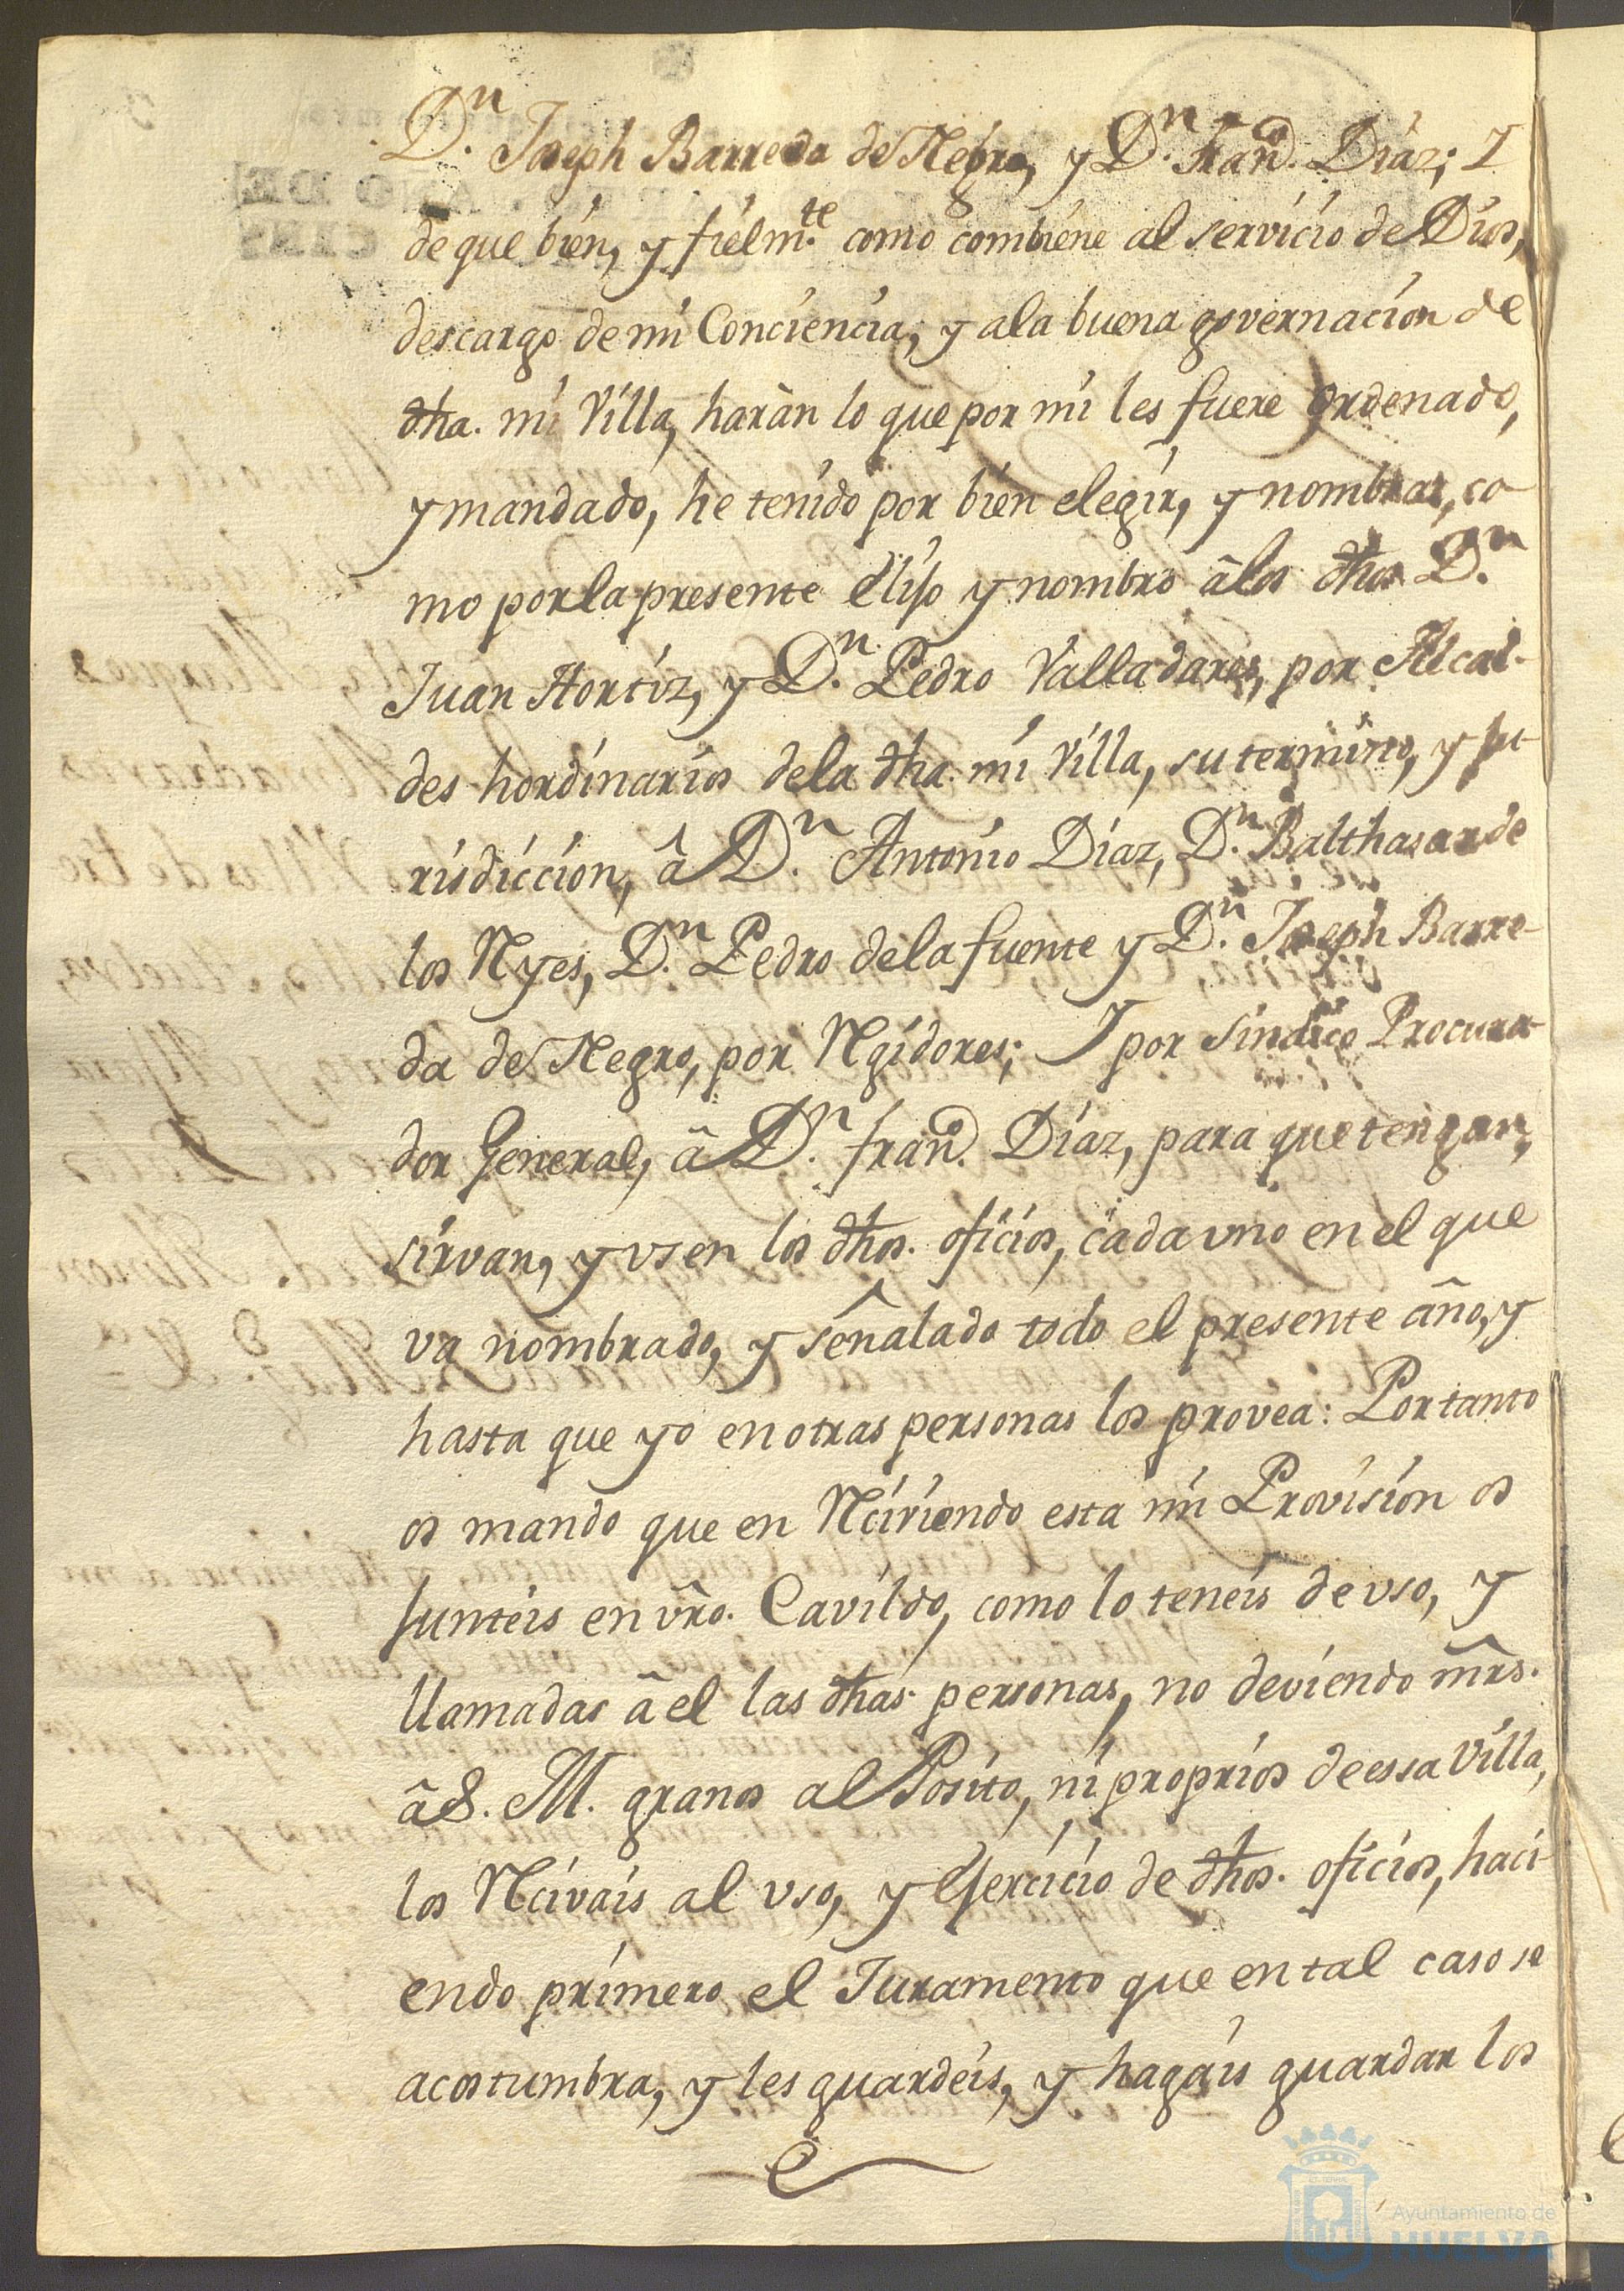 D.ⁿ Joseph Barreda de Negro, y D.ⁿ Fran.co Diaz; I
de que bien, y fielm.te como combiene al servicio de Dios,
descargo de mi Conciencia, y ala buena governacion de
dha. mi Villa, haràn lo que por mi les fuere ordenado,
y mandado, he tenido por bien elegir, y nombrar, co-
mo porla presente elijo y nombro â los dhos D.ⁿ
Juan Hortiz, y D.ⁿ Pedro Valladares, por Alcal-
des hordinarios dela dha. mi Villa, su termino, y ju-
risdiccion, â D.ⁿ Antonio Diaz, D.ⁿ Balthasar de
los Ryes, D.ⁿ Pedro dela fuente y D.ⁿ Joseph Barre-
da de Negro, por Rgidores; I por Sindico Procura-
dor General, â D.ⁿ fran.co Diaz, para que tengan,
sirvan, y vsen los dhos. oficios, cada vno en el que
va nombrado, y señalado todo el presente año, y
hasta que yo en otras personas los provea: Portanto
os mando que en Rciviendo esta mi Provision os
junteis en vro. Cavildo, como lo teneis de vso, y
llamadas â el las dhas. personas, no deviendo mrs.
â S. M. granos al Posito, ni proprios de essa Villa,
los Rcivais al vso, y ejercicio de dhos. oficios, haci-
endo primero el Juramento que en tal caso se
acostumbra, y les guardeis, y hagais guardar los
Ayuntamiento de
HUELVA